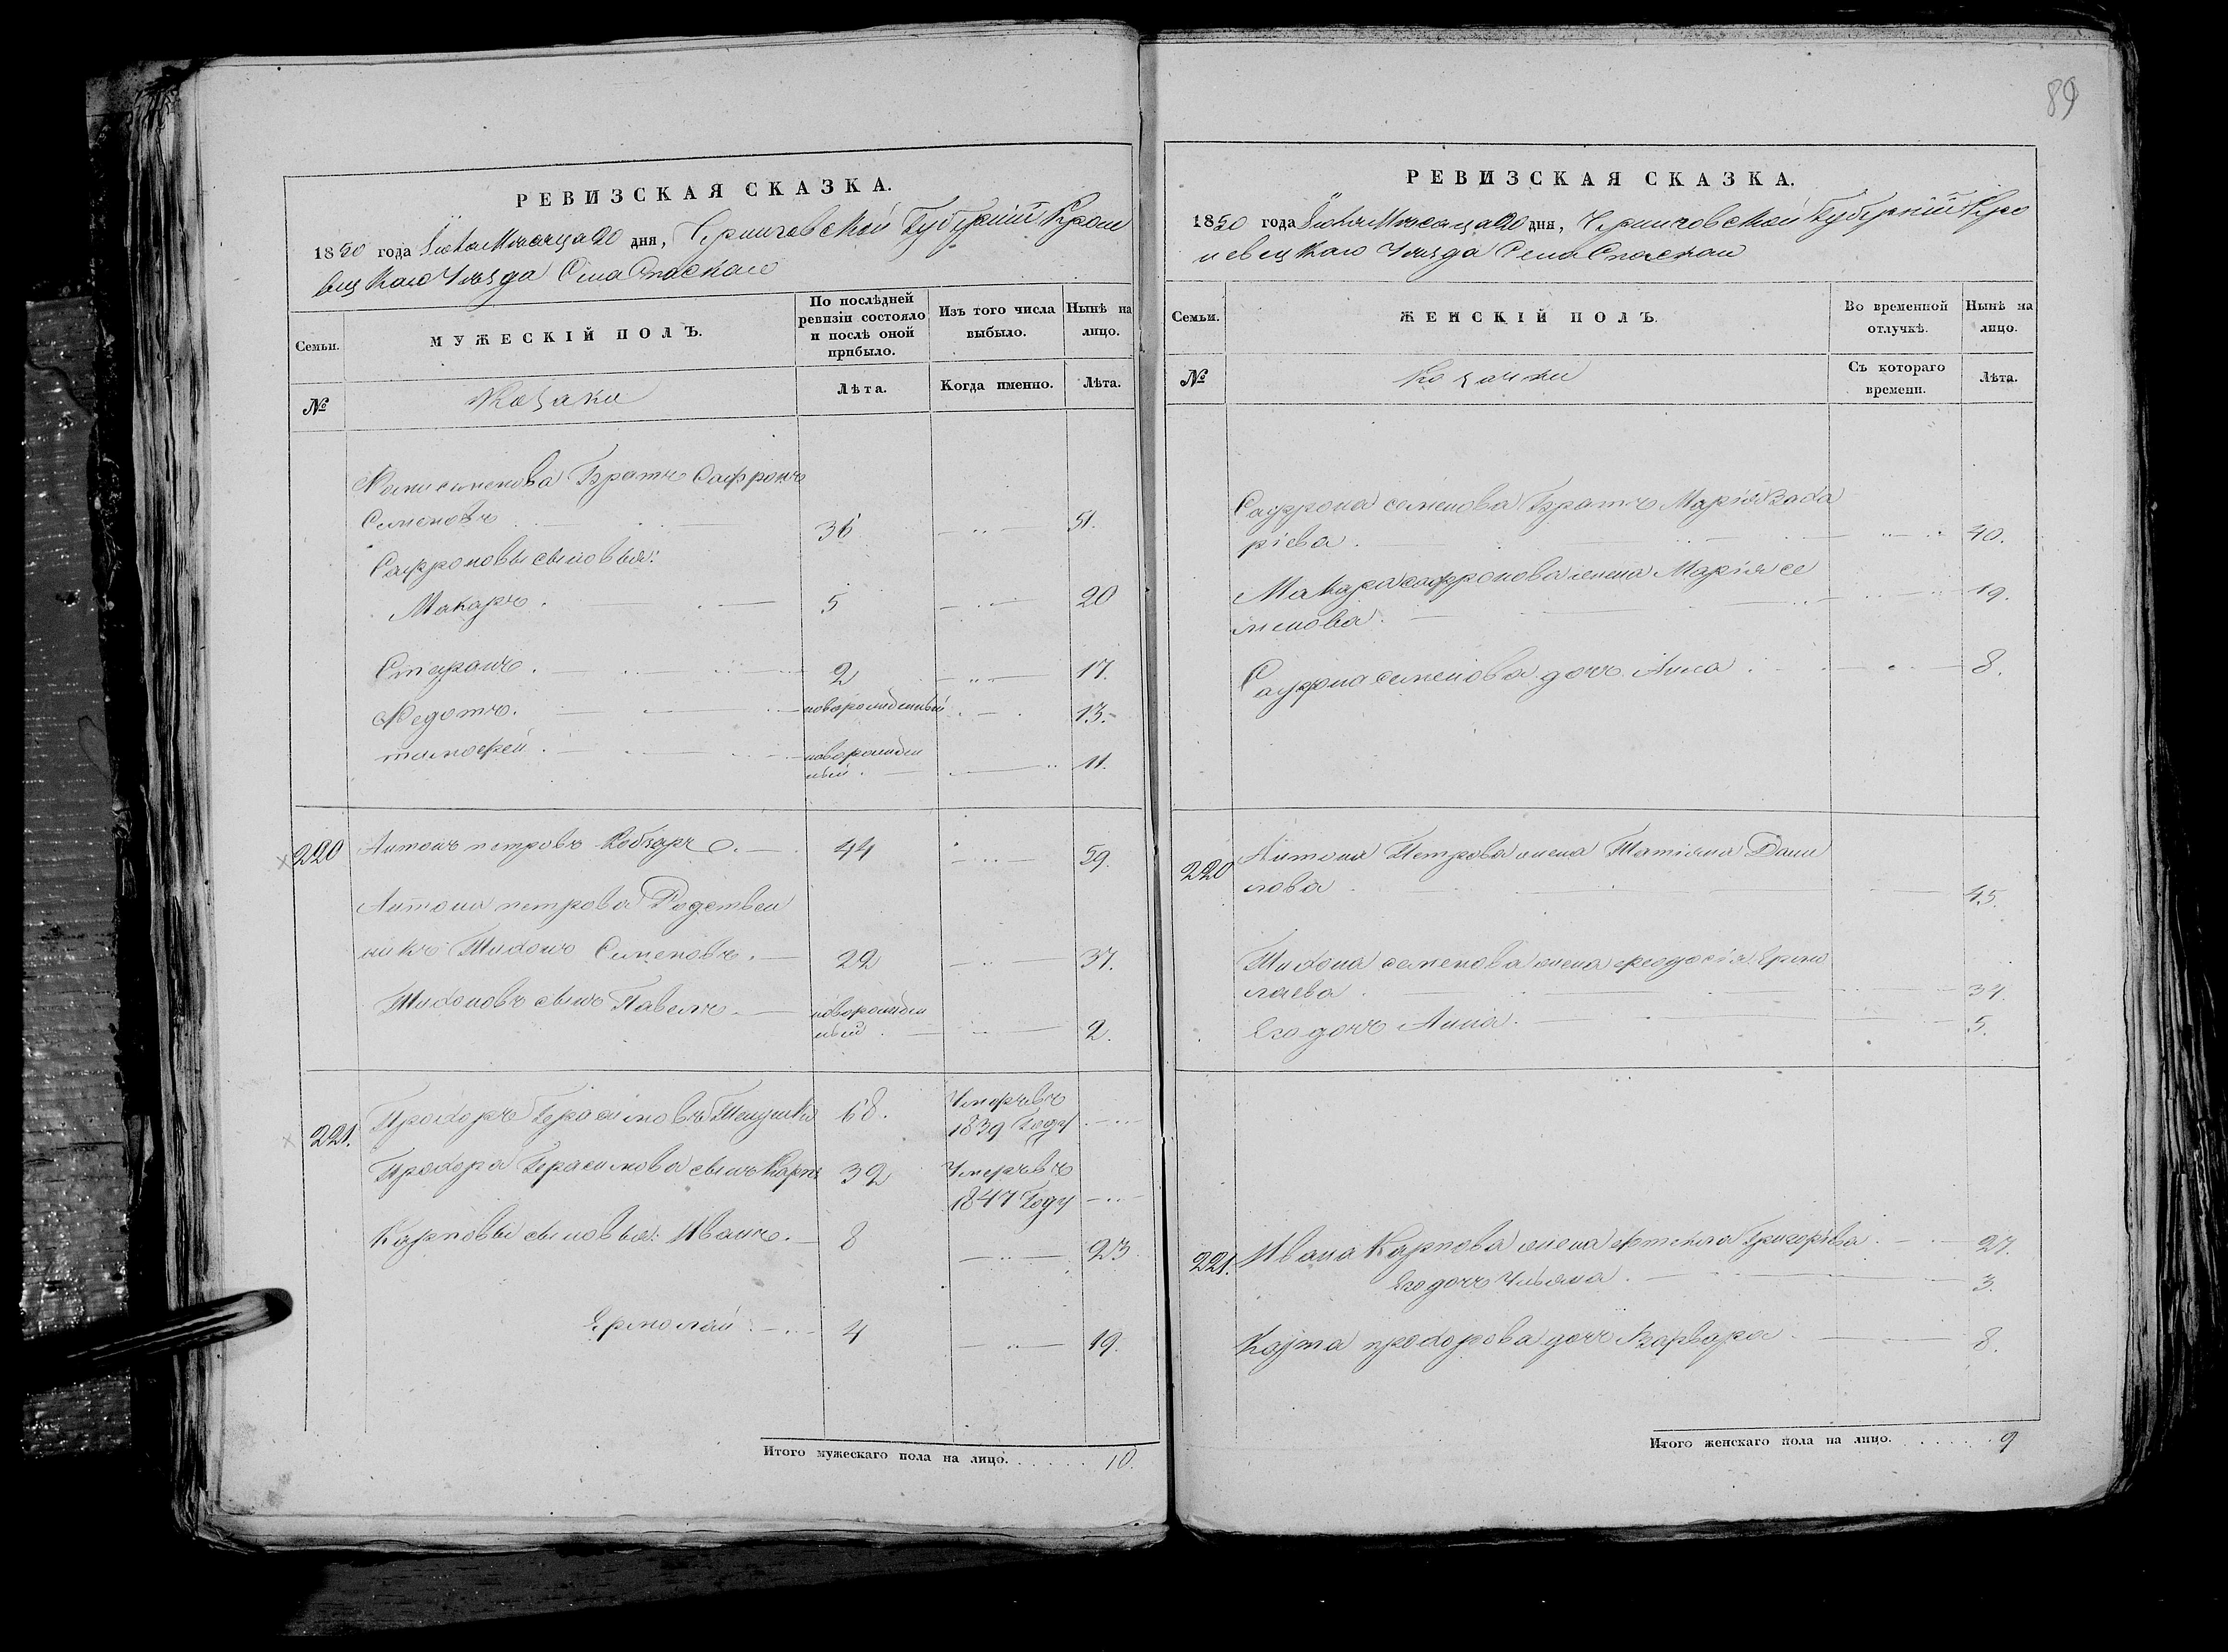 89
РЕВИЗСКАЯ СКАЗКА.
1850 года Июня Месяца 20 дня, Черниговской Губерніи Кроле
вецкаго Уѣзда Села Спаскаго
Семьи.
МУЖЕСКІЙ ПОЛЪ.
По послѣдней ревизіи состояло и послѣ оной прибыло.
Изъ того числа выбыло.
Нынѣ на лицо.
№
Козаки
Лѣта.
Когда именно.
Лѣта.
семенова Братъ Сафронъ
Семеновъ 36 51.
Сафроновы сыновья:
Макаръ. 5 20
Стефанъ. 2 17.
Федотъ. новорожденный 13.
тимофей. новорожден
ный. 11.
220 Антонъ петровъ Кобзарь. 44 59.
Антона петрова Родствен
никъ Тихонъ Семеновъ. 22 37.
Тихоновъ сынъ Павелъ. новорожден
ный. 2.
221. Прохоръ Герасимовъ 68. Умеръ въ
1839 Году
Прохора Герасимова сынъ Карпъ 32 Умеръ въ
1847 Году
Карповы сыновья: Иванъ. 8 23.
Ермолай. 4 19.
Итого мужескаго пола на лицо. 10.
РЕВИЗСКАЯ СКАЗКА.
1850 года Июня Месяца 20 дня, Черниговской Губерніи Кро
левецкаго Уѣзда Села Спаскаго
Семьи.
ЖЕНСКІЙ ПОЛЪ.
Во временной отлучкѣ.
Нынѣ на лицо.
№
Козачки
Съ котораго времени.
Лѣта.
Сафрона семенова Братъ Марія Заха
ріева. 40.
Макара сафронова жена Марія се
менова. 19.
семенова дочь Анна 8.
220 Антона Петрова жена Татіяна Дани
лова 45.
Тихона семенова жена феодосія Ермо
лаева. 34.
Его дочь Анна. 5.
221. Ивана Карпова жена Григорьева. 27.
Его дочь Ульяна. 3.
Карпа прохорова дочь Варвара. 8.
Итого женскаго пола на лицо. 9